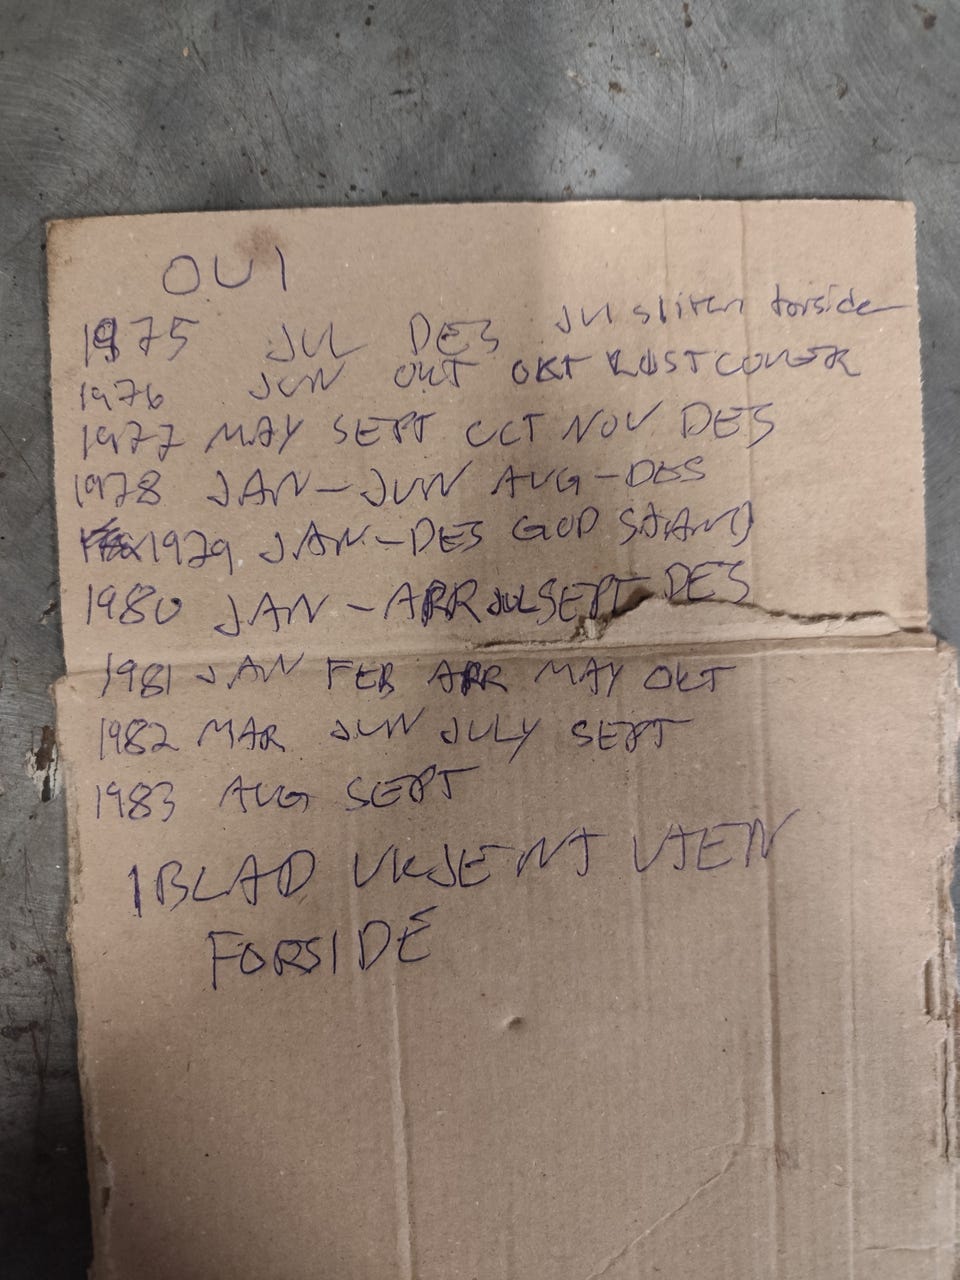 OUI
1975 JUL DES Jul sliten forside
1976 JUN OKT OKT LØST COVER
1977 MAY SEPT OCT NOV DES
1978 JAN-JUN AUG-DES
1979 JAN-DES GOD STAND
1980 JAN-APR JUL SEPT DES
1981 JAN FEB APR MAY OKT
1982 MAR JUN JULY SEPT
1983 AUG SEPT
1 BLAD UKJENT UTEN
FORSIDE